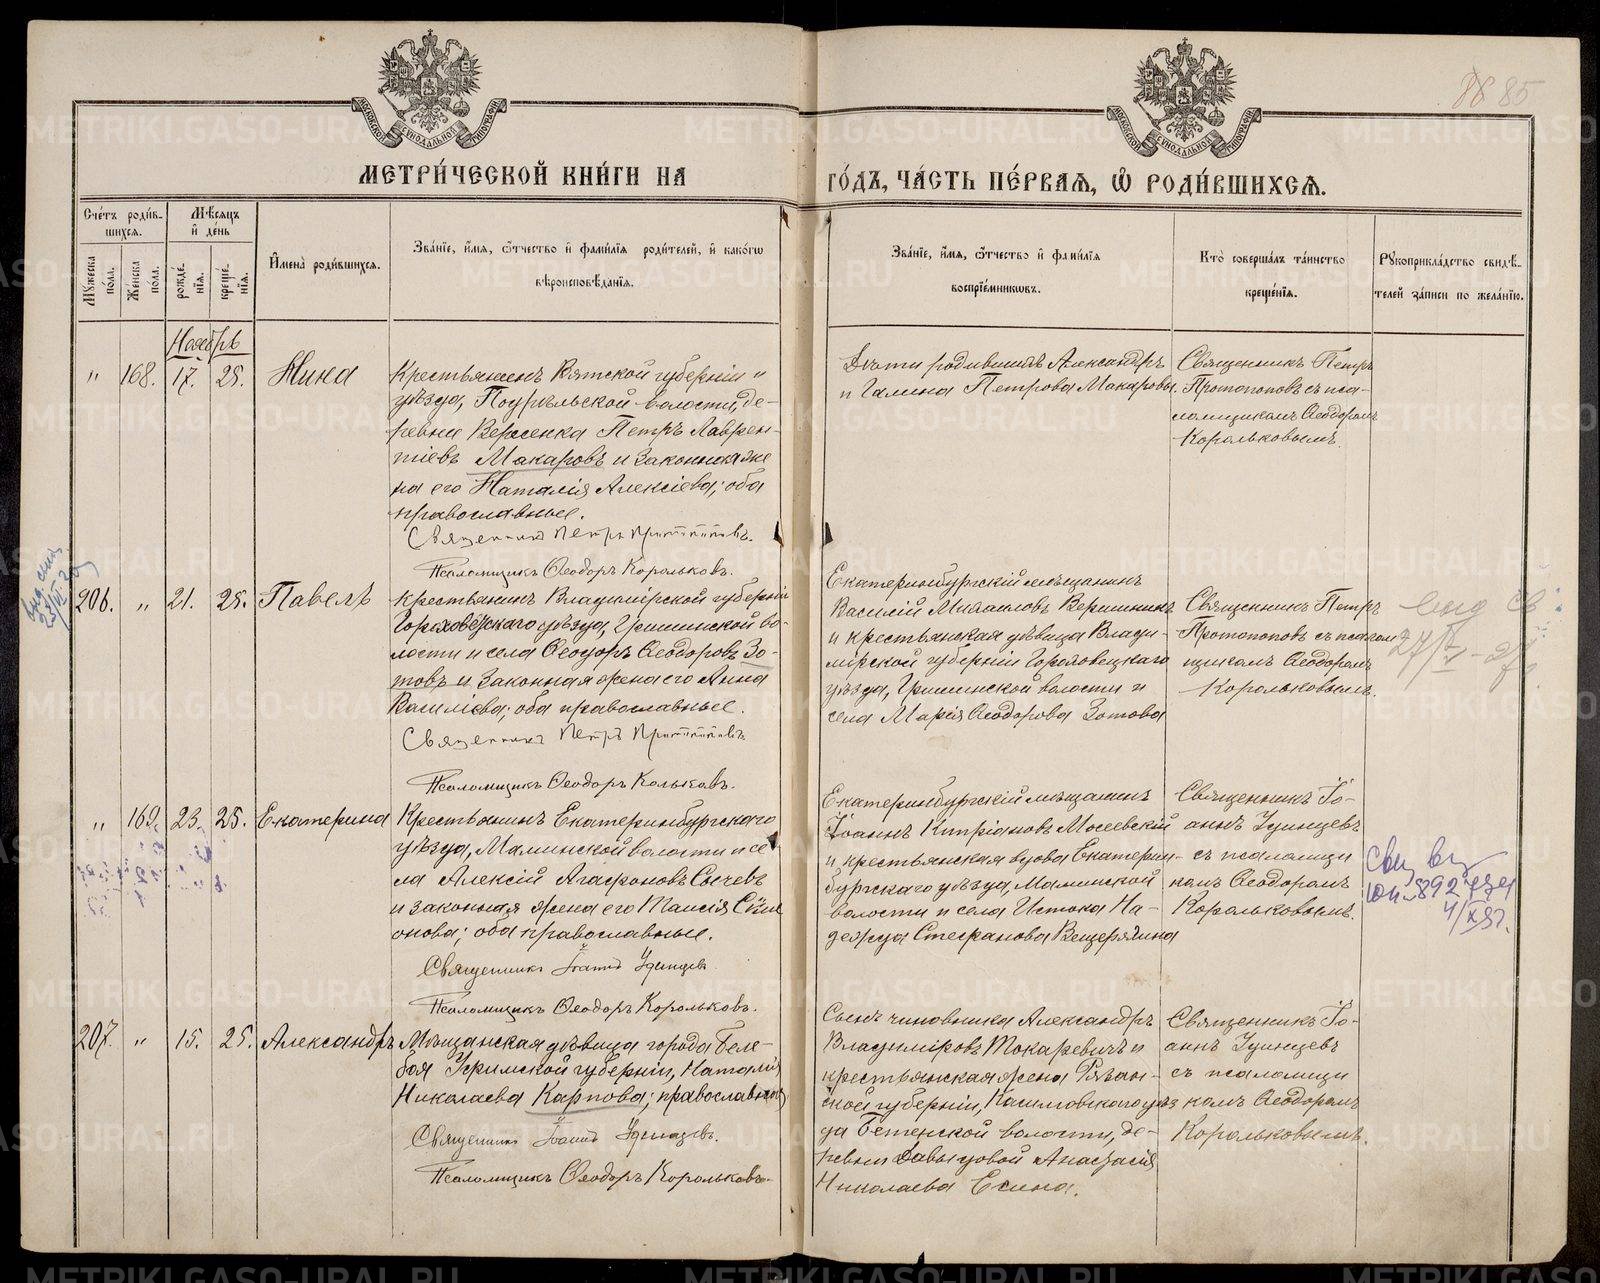 86 85
МОСКОВСКОЙ СѴНОДАЛЬНОЙ ТИПОГРАФІИ
МОСКОВСКОЙ СѴНОДАЛЬНОЙ ТИПОГРАФІИ
МЕТРИ́ЧЕСКОЙ КНИ́ГИ НА
ГО́ДЪ, ЧА́СТЬ ПЕ́РВАЯ, Ѽ РОДИ́ВШИХСЯ.
Сче́тъ роди́в-
шихся.
Мѣ́сяцъ
и҆ де́нь
Мꙋ́жеска
по́ла.
Же́нска
по́ла.
рожде́-
нїя.
креще́-
нїя.
И҆мена̀ роди́вшихся.
Зва́нїе, и҆́мя, ѻ҆́тчество и҆ фами́лїя роди́телей, и҆ како́гѡ
вѣроисповѣ́данїя.
Зва́нїе, и҆́мя, ѻ҆́тчество и҆ фами́лїя
воспрїе́мниковъ.
Кто̀ соверша́лъ та́инство
креще́нїя.
Рꙋкоприкла́дство свидѣ́-
телей за́писи по жела́нїю.
Ноябрь
" 168. 17. 25. Нина
Крестьянинъ Вятской губерніи и
уѣзда, Поурѣльской волости, де-
ревни Верхенка Петръ Лаврен-
тіевъ Макаровъ и законная же
на его Наталія Алексіева; оба
православные.
Священникъ Петръ Протопоповъ.
Псаломщикъ Ѳеодоръ Корольковъ.
Дѣти родившихъ Александръ
и Галина Петрова Макаровы.
Священникъ Петръ
Протопоповъ съ пса-
ломщикомъ Ѳеодоромъ
Корольковымъ.
206. " 21. 25. Павелъ
Крестьянинъ Владимірской губерніи
Гороховецкаго уѣзда, Гришинской во-
лости и села Ѳеодоръ Ѳеодоровъ Зо-
товъ и законная жена его Анна
Василіева; оба православные.
Священникъ Петръ Протопоповъ
Псаломщикъ Ѳеодоръ Кольковъ.
Екатеринбургскій мѣщанинъ
Василій Михаиловъ Вершининъ
и крестьянская дѣвица Влади-
мірской губерніи Гороховецкаго
уѣзда, Гришинской волости и
села Марія Ѳеодорова Зотова
Священникъ Петръ
Протопоповъ съ псалом
щикомъ Ѳеодоромъ
Корольковымъ.
" 169. 23. 25. Екатерина
Крестьянинъ Екатеринбургскаго
уѣзда, Маминской волости и се
ла Алексій Агафоновъ Сычевъ
и законная жена его Таисія Сим
онова; оба православные.
Священникъ Іоаннъ Удинцевъ.
Псаломщикъ Ѳеодоръ Корольковъ.
Екатеринбургскій мѣщанинъ
Іоаннъ Кипріановъ Мосеевскій
и крестьянская вдова Екатерин-
бургскаго уѣзда, Маминской
волости и села Истока На-
дежда Стефанова Вещерякина
Священникъ Іо-
аннъ Удинцевъ
съ псаломщи
комъ Ѳеодоромъ
Корольковымъ.
207. " 15. 25. Александръ
Мѣщанская дѣвица города Беле-
бея Уфимской губерніи, Наталія
Николаева Карпова; православная
Священникъ Іоаннъ Удинцевъ.
Псаломщикъ Ѳеодоръ Корольковъ.
Сынъ чиновника Александръ
Владиміровъ Токаревичъ и
крестьянская жена Рязан-
ской губерніи, Касимовскаго уѣз
да Бетенской волости, де-
ревни Давыдовой Анастасія
Николаева Есина.
Священникъ Іо-
аннъ Удинцевъ
съ псаломщи
комъ Ѳеодоромъ
Корольковымъ.
METRIKI.GASO-URAL.RU